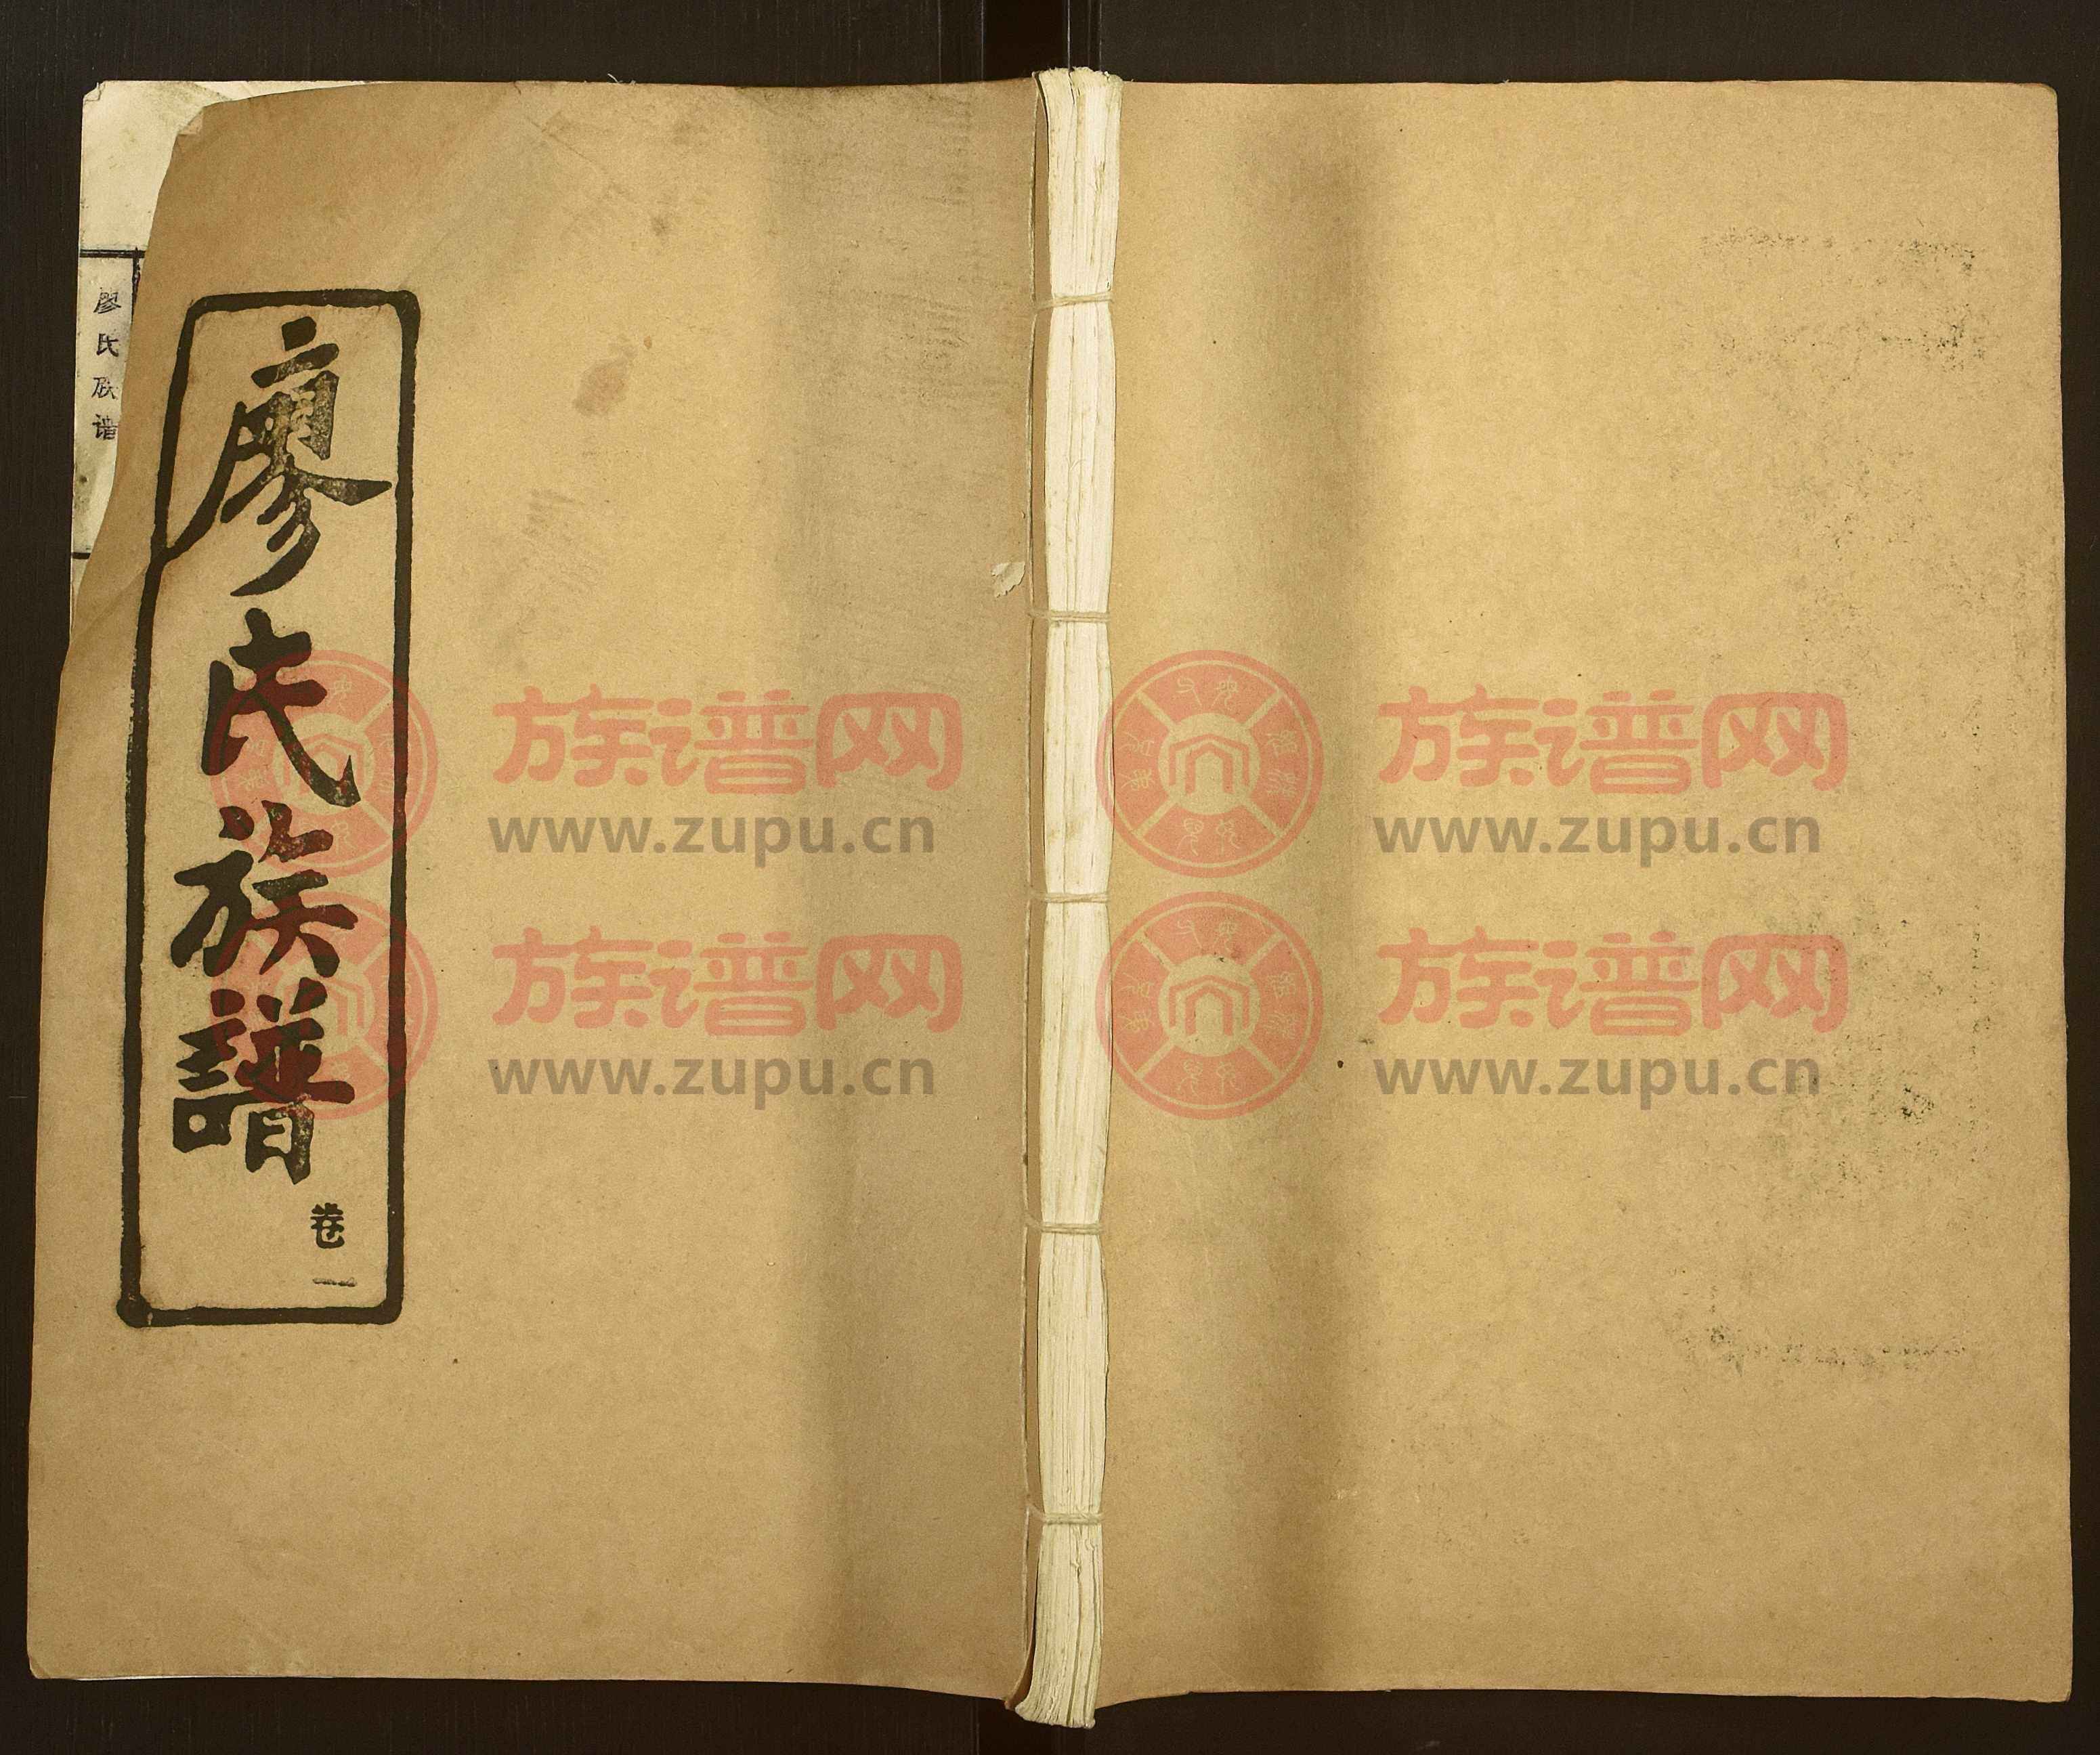 廖氏族譜
卷一
廖氏族谱
族谱网
www.zupu.cn
族谱网
www.zupu.cn
族谱网
www.zupu.cn
族谱网
www.zupu.cn